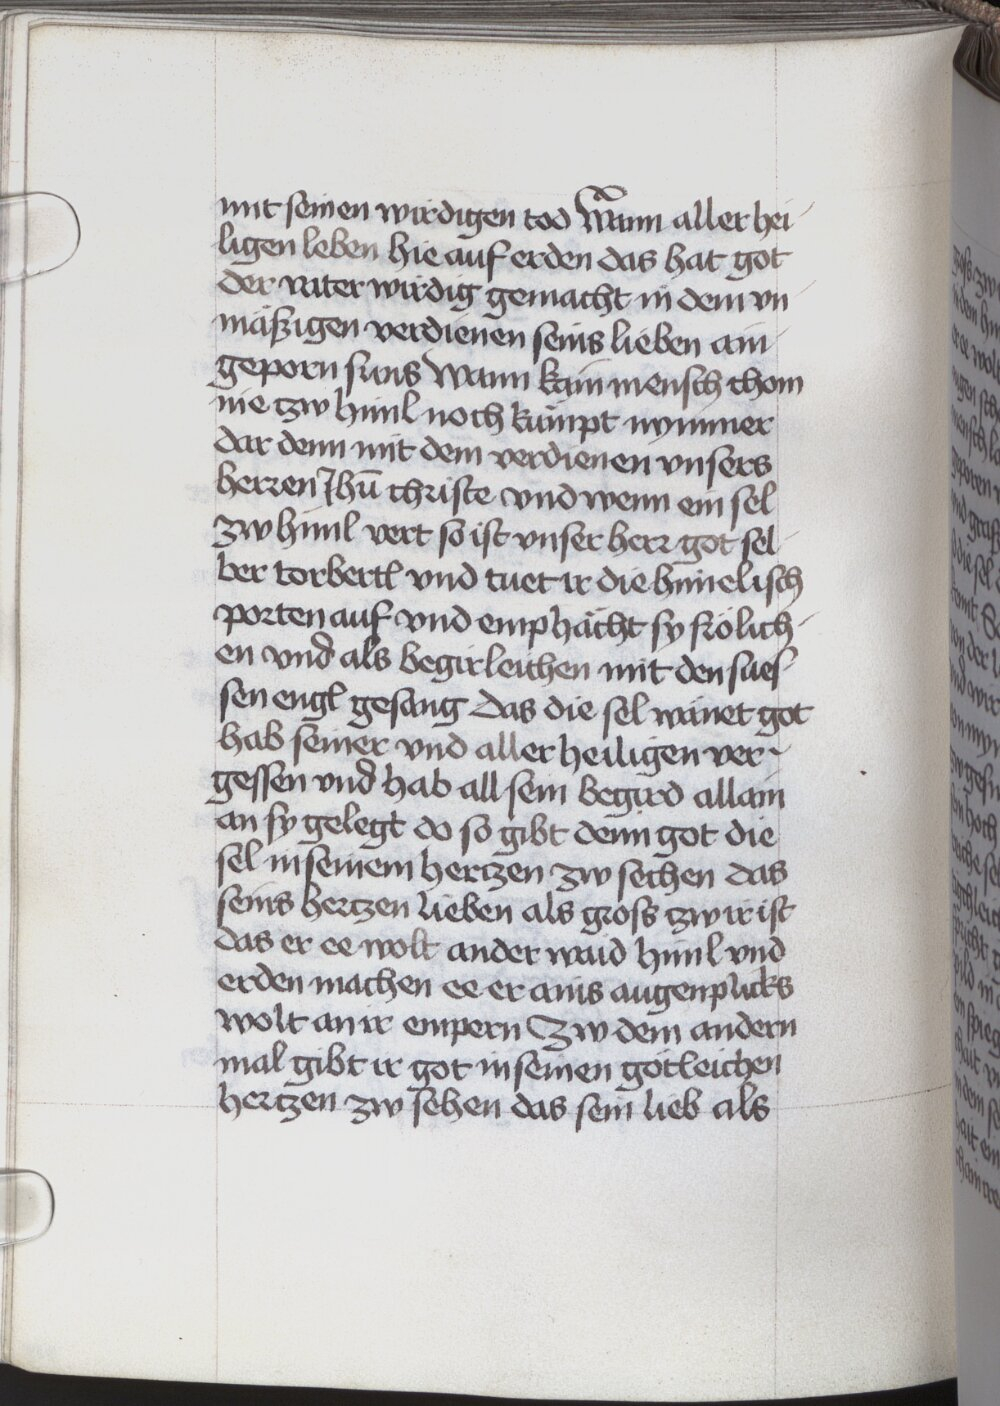 mit seinen wirdigen tod Wann aller hei
ligen leben hie auf erden das hat got
der vater wirdig gemacht in dem vn
mässigen verdienen seins lieben ain
geporn suns Wann kain mensch chom
nie zw himl noch kumpt nymmer
dar denn mit dem verdienen vnsers
herren Jhū christe vnd wenn ein sel
zw himl vert so ist vnser herr got sel
ber torbertl vnd tuet ir die himelisch
porten auf vnd emphächt sy frölich
en vnd als begirleichen mit den sues
sen engl gesang das die sel wänet got
hab seiner vnd aller heiligen ver
gessen vnd hab all sein begird allain
an sy gelegt do so gibt denn got die
sel in seinem hertzen zw sechen das
seins hertzen lieben als gross zw ir ist
das er ee wolt ander waid himl vnd
erden machen ee er ains augenplicks
wolt an ir empern Zw dem andern
mal gibt ir got in seinen götleichen
hertzen zw sehen das sein lieb als